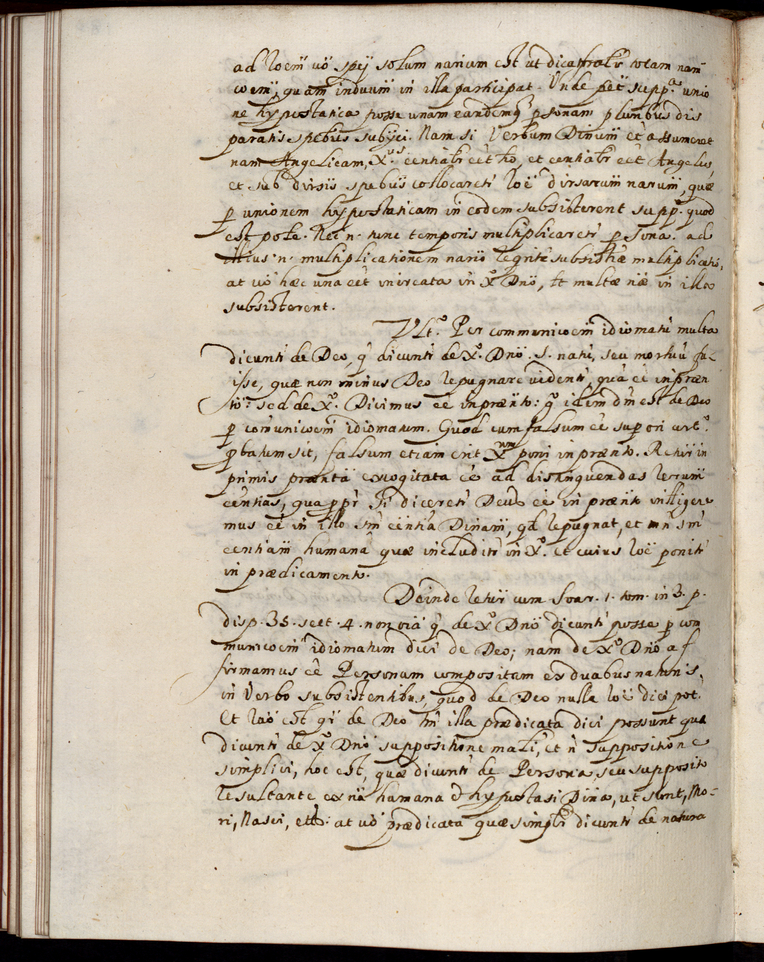 ad roem̃ uö spej solum narium est ut dicat totam nam
coem̃, quam induum̃ in illa participat. Unde fiet supp.ª unio
ne hypostatica posse unam eandemq̃ psonam pluribus dis
paratis spebus subijci. Nam si Verbum Dinum̃ et assumeret
nam Angelicam, X.us eentialr eet ho, et eentialr eet Angelus,
et sub diversis spebus collocaretr roë dirsarum narum̃, quæ
p unionem hypostaticam in eodem subsisterent supp.º quod
est pote. Nec n. tunc temporis multiplicaretr psona. ad
illius n. multiplicationem nario reqritr subsistiæ multiplicatio,
at uö hæc una eet increata in X.º Dnö, et multæ naæ in illo
subsisterent.
Ult.º Per communicoem̃ idiomatũ multa
dicuntr de Deo, q̃ dicuntr de X.º Dnö. s. natũ, seu mortuũ fu-
isse, quæ non minus Deo repugnare videntr, quã eë in præn
to: sed de X.º Dicimus eë in prænto: g.º idem dm̃ est de Deo
p com̃unicoem̃ idiomatum. Quod cum falsum eë superiori art.º
pbatum sit, falsum etiam erit X.um poni in prænto. Retur in
primis prænta excogitata eë ad distinguendas rerum
eëntias, qua ppr si diceretr Deus eë in prænto intillgere
mus eë in illo sm̃ eëntiã Dinam̃, qd repugnat, et nñ sm̃
eentiam̃ humanã quæ includitr in X.º et cuius roë ponitr
in prædicamento.
Deinde retur cum Soar. 1. tom. in 3. p.
disp. 35. sect. 4. non oia q̃ de X.º Dnö dicuntr posse p com
municoem̃ idiomatum dici de Deo; nam de X.º Dnö af
firmamus eë Personam compositam ex duabus naturis,
in Verbo subsistentibus, quod de Deo nulla roë dici pot.
Et raö est qi de Deo tm̃ illa prædicata dici possunt quæ
dicuntr de X.º Dnö suppositione mali, et ñ suppositione
simplici, hoc est, quæ dicuntr de Persona, seu supposito
resultante ex nä humana et hypostasi Dina, ut sunt, Mo-
ri, Nasci, etc.: at uö prædicata quæ simplr dicuntr de natura